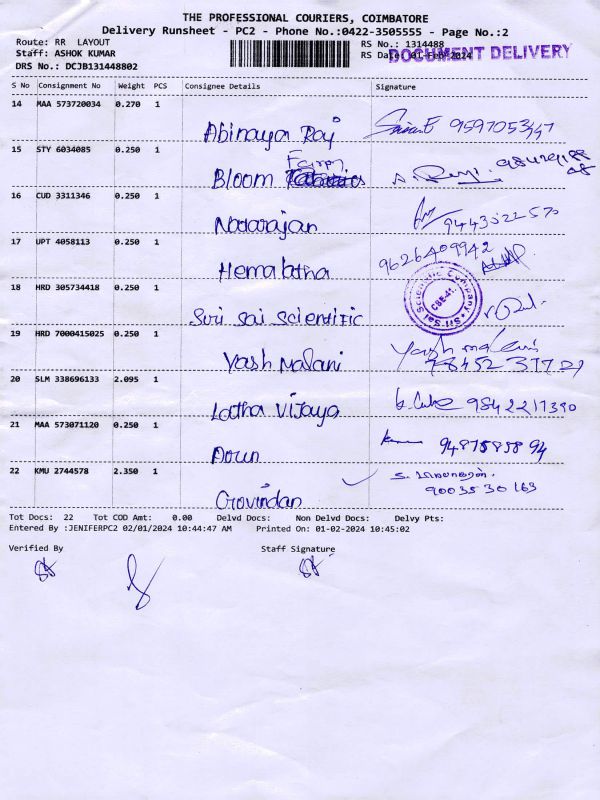 THE PROFESSIONAL COURIERS, COIMBATORE
Delivery Runsheet - PC2 - Phone No.:0422-3505555 - Page No.:2
Route: RR LAYOUT
Staff: ASHOK KUMAR
DRS No.: DCJB131448802
RS No.: 1314488
RS Date: 01-Feb-2024
DOCUMENT DELIVERY
S No Consignment No Weight PCS Consignee Details Signature
14 MAA 573720034 0.270 1
Abinaya Raj
15 STY 6034085 0.250 1
Bloom
16 CUD 3311346 0.250 1
Natarajan 9443522570
17 UPT 4058113 0.250 1
Hemalatha 9626409942
18 HRD 305734418 0.250 1
Suri Sai Scientific
Sri Sai Scientific Company
CBE-41.
19 HRD 7000415025 0.250 1
Yash Malani
20 SLM 338696133 2.095 1
Latha Vijaya
21 MAA 573071120 0.250 1
22 KMU 2744578 2.350 1
Govindan 9003530163
Tot Docs: 22 Tot COD Amt: 0.00 Delvd Docs: Non Delvd Docs: Delvy Pts:
Entered By :JENIFERPC2 02/01/2024 10:44:47 AM Printed On: 01-02-2024 10:45:02
Verified By Staff Signature